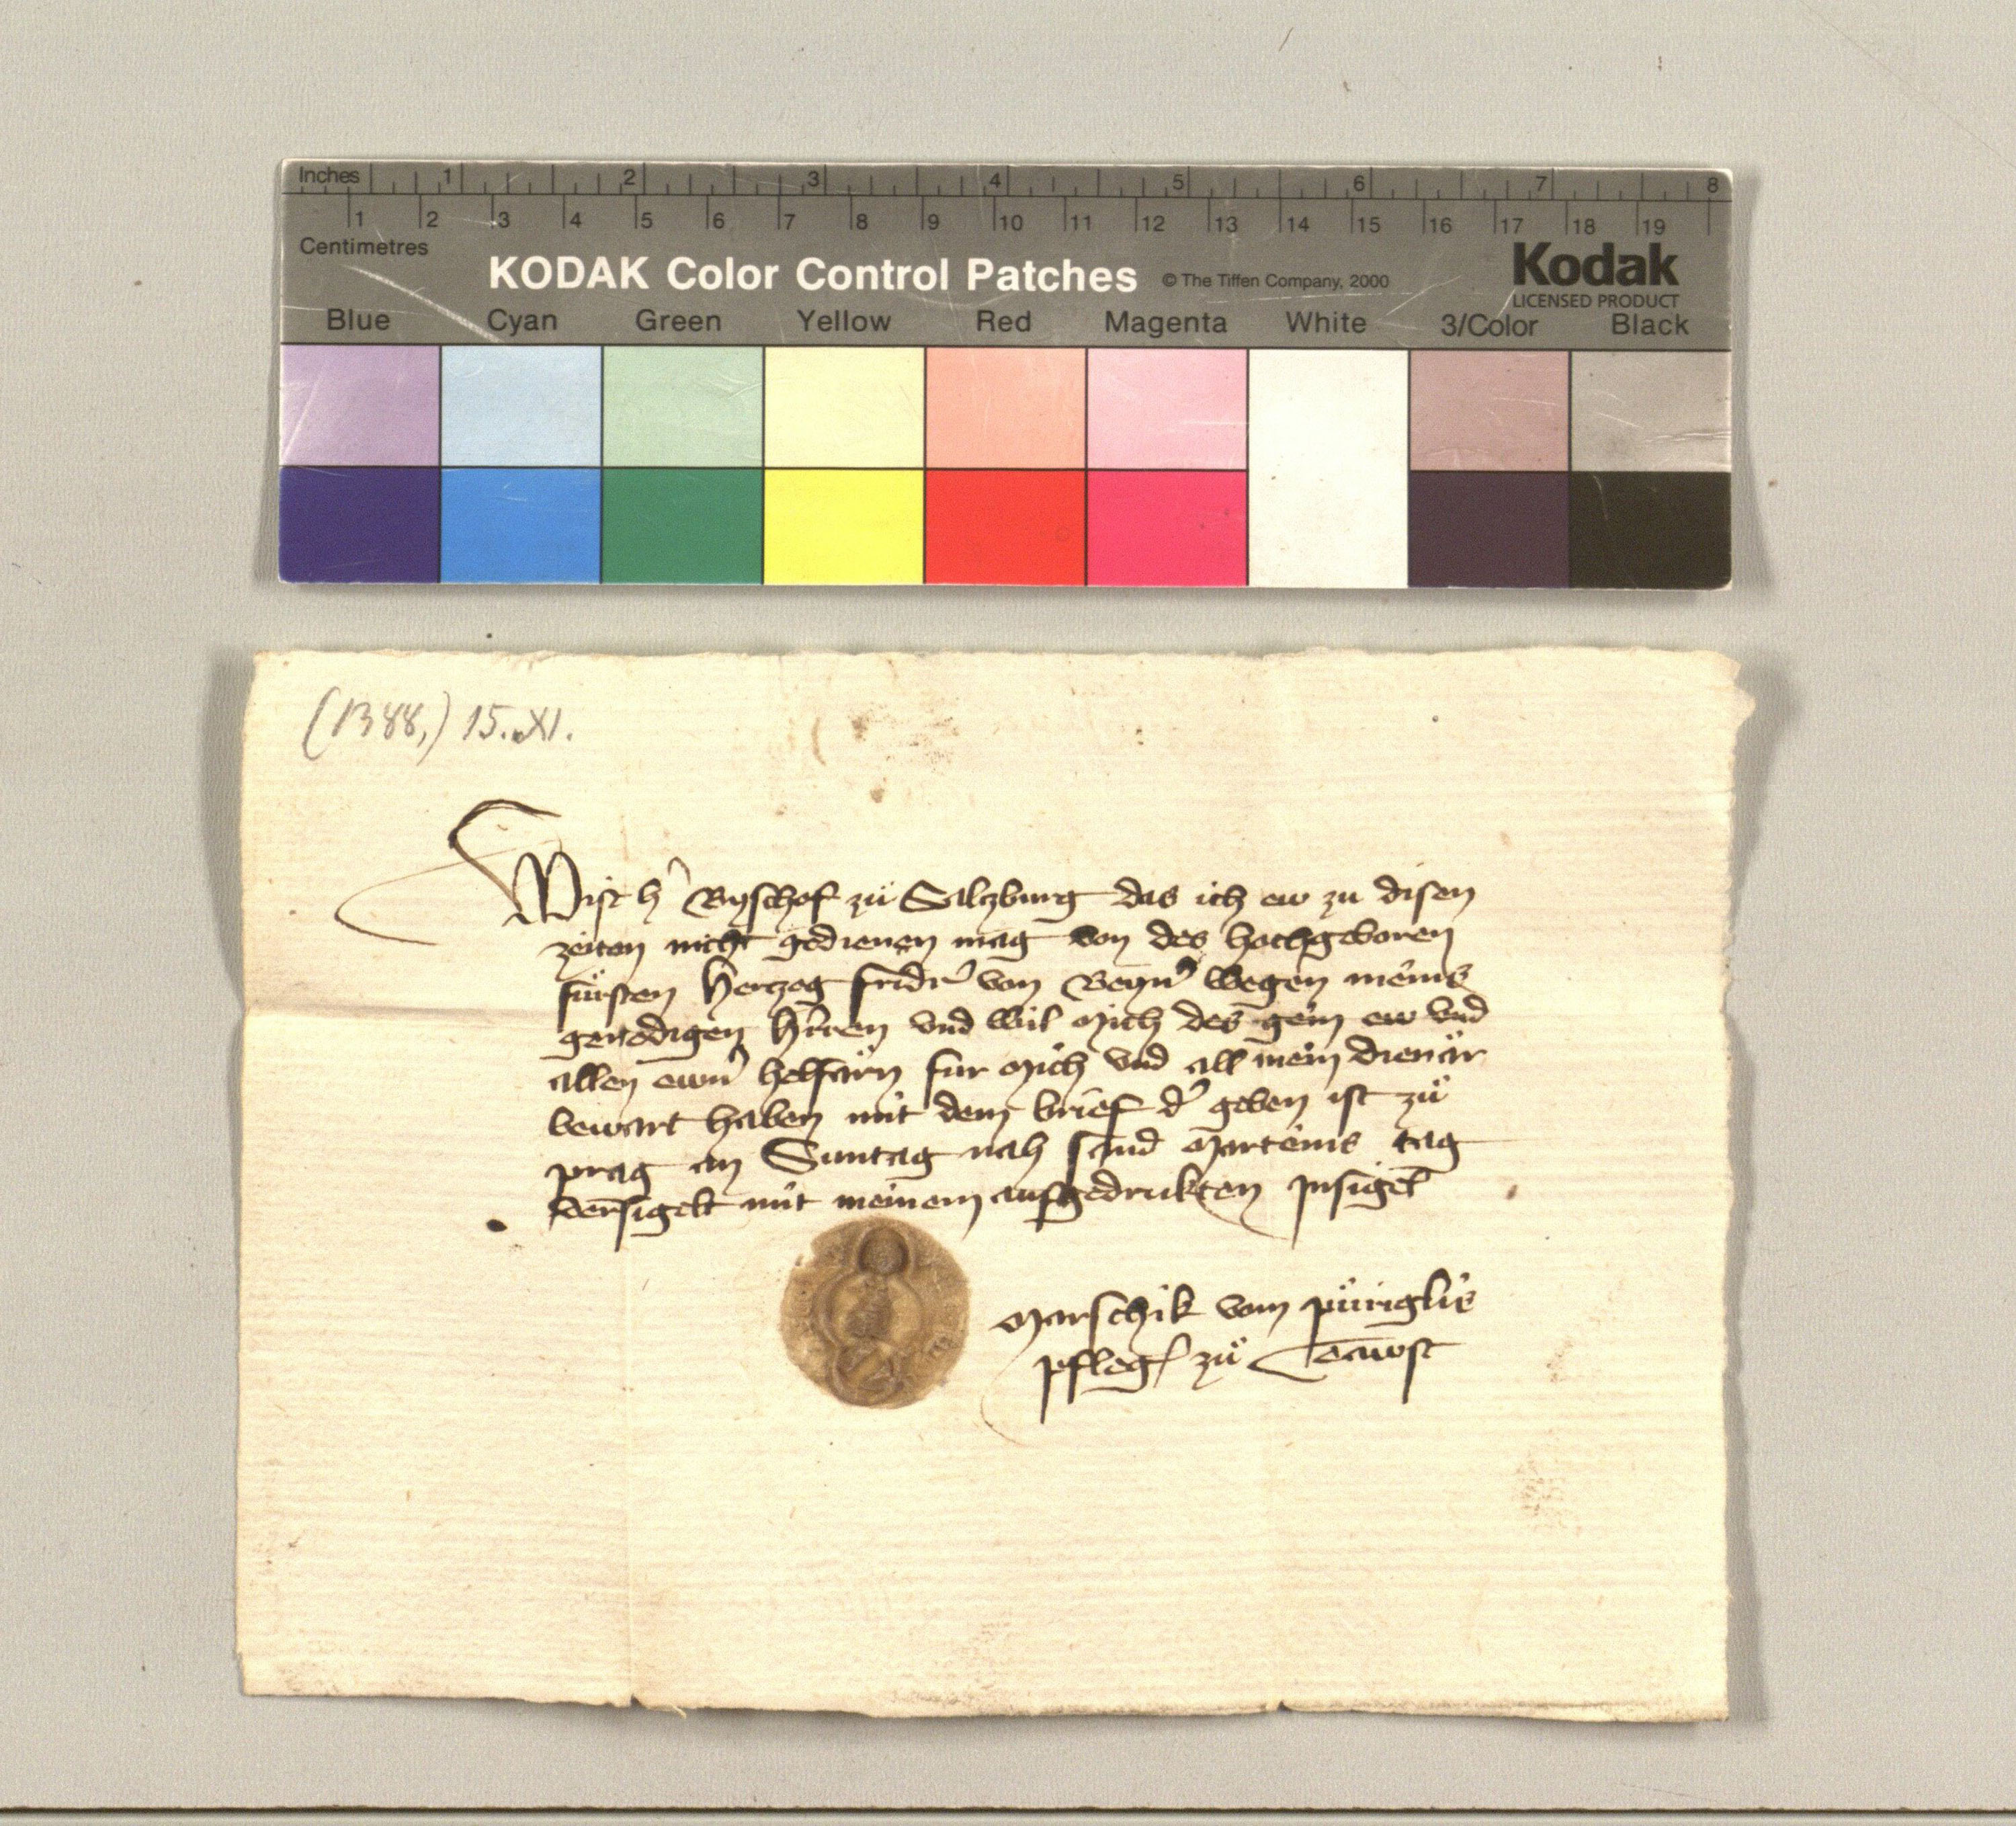 Inches 1 2 3 4 5 6 7 8
1 2 3 4 5 6 7 8 9 10 11 12 13 14 15 16 17 18 19
Centimetres
KODAK Color Control Patches © The Tiffen Company, 2000 Kodak
LICENSED PRODUCT
Blue Cyan Green Yellow Red Magenta White 3/Color Black
(1388,) 15.XI.
Wist h' Byschof zü Salzburg das ich ew zu disen
zeiten nicht gedienen mag von des hochgeboren
fürsten herczog fridr' von Beyrn' wegen meins
genedigen h'rren vnd wil mich des gein ew vnd
allen ewrn' helfärn für mich vnd all mein dienär
bewart haben mit dem brief d' geben ist zü
prag an Suntag nah sand marteins tag
versigelt mit meinem aufgedrukten Insigel
marschik vom püriglis
pfleg' zü